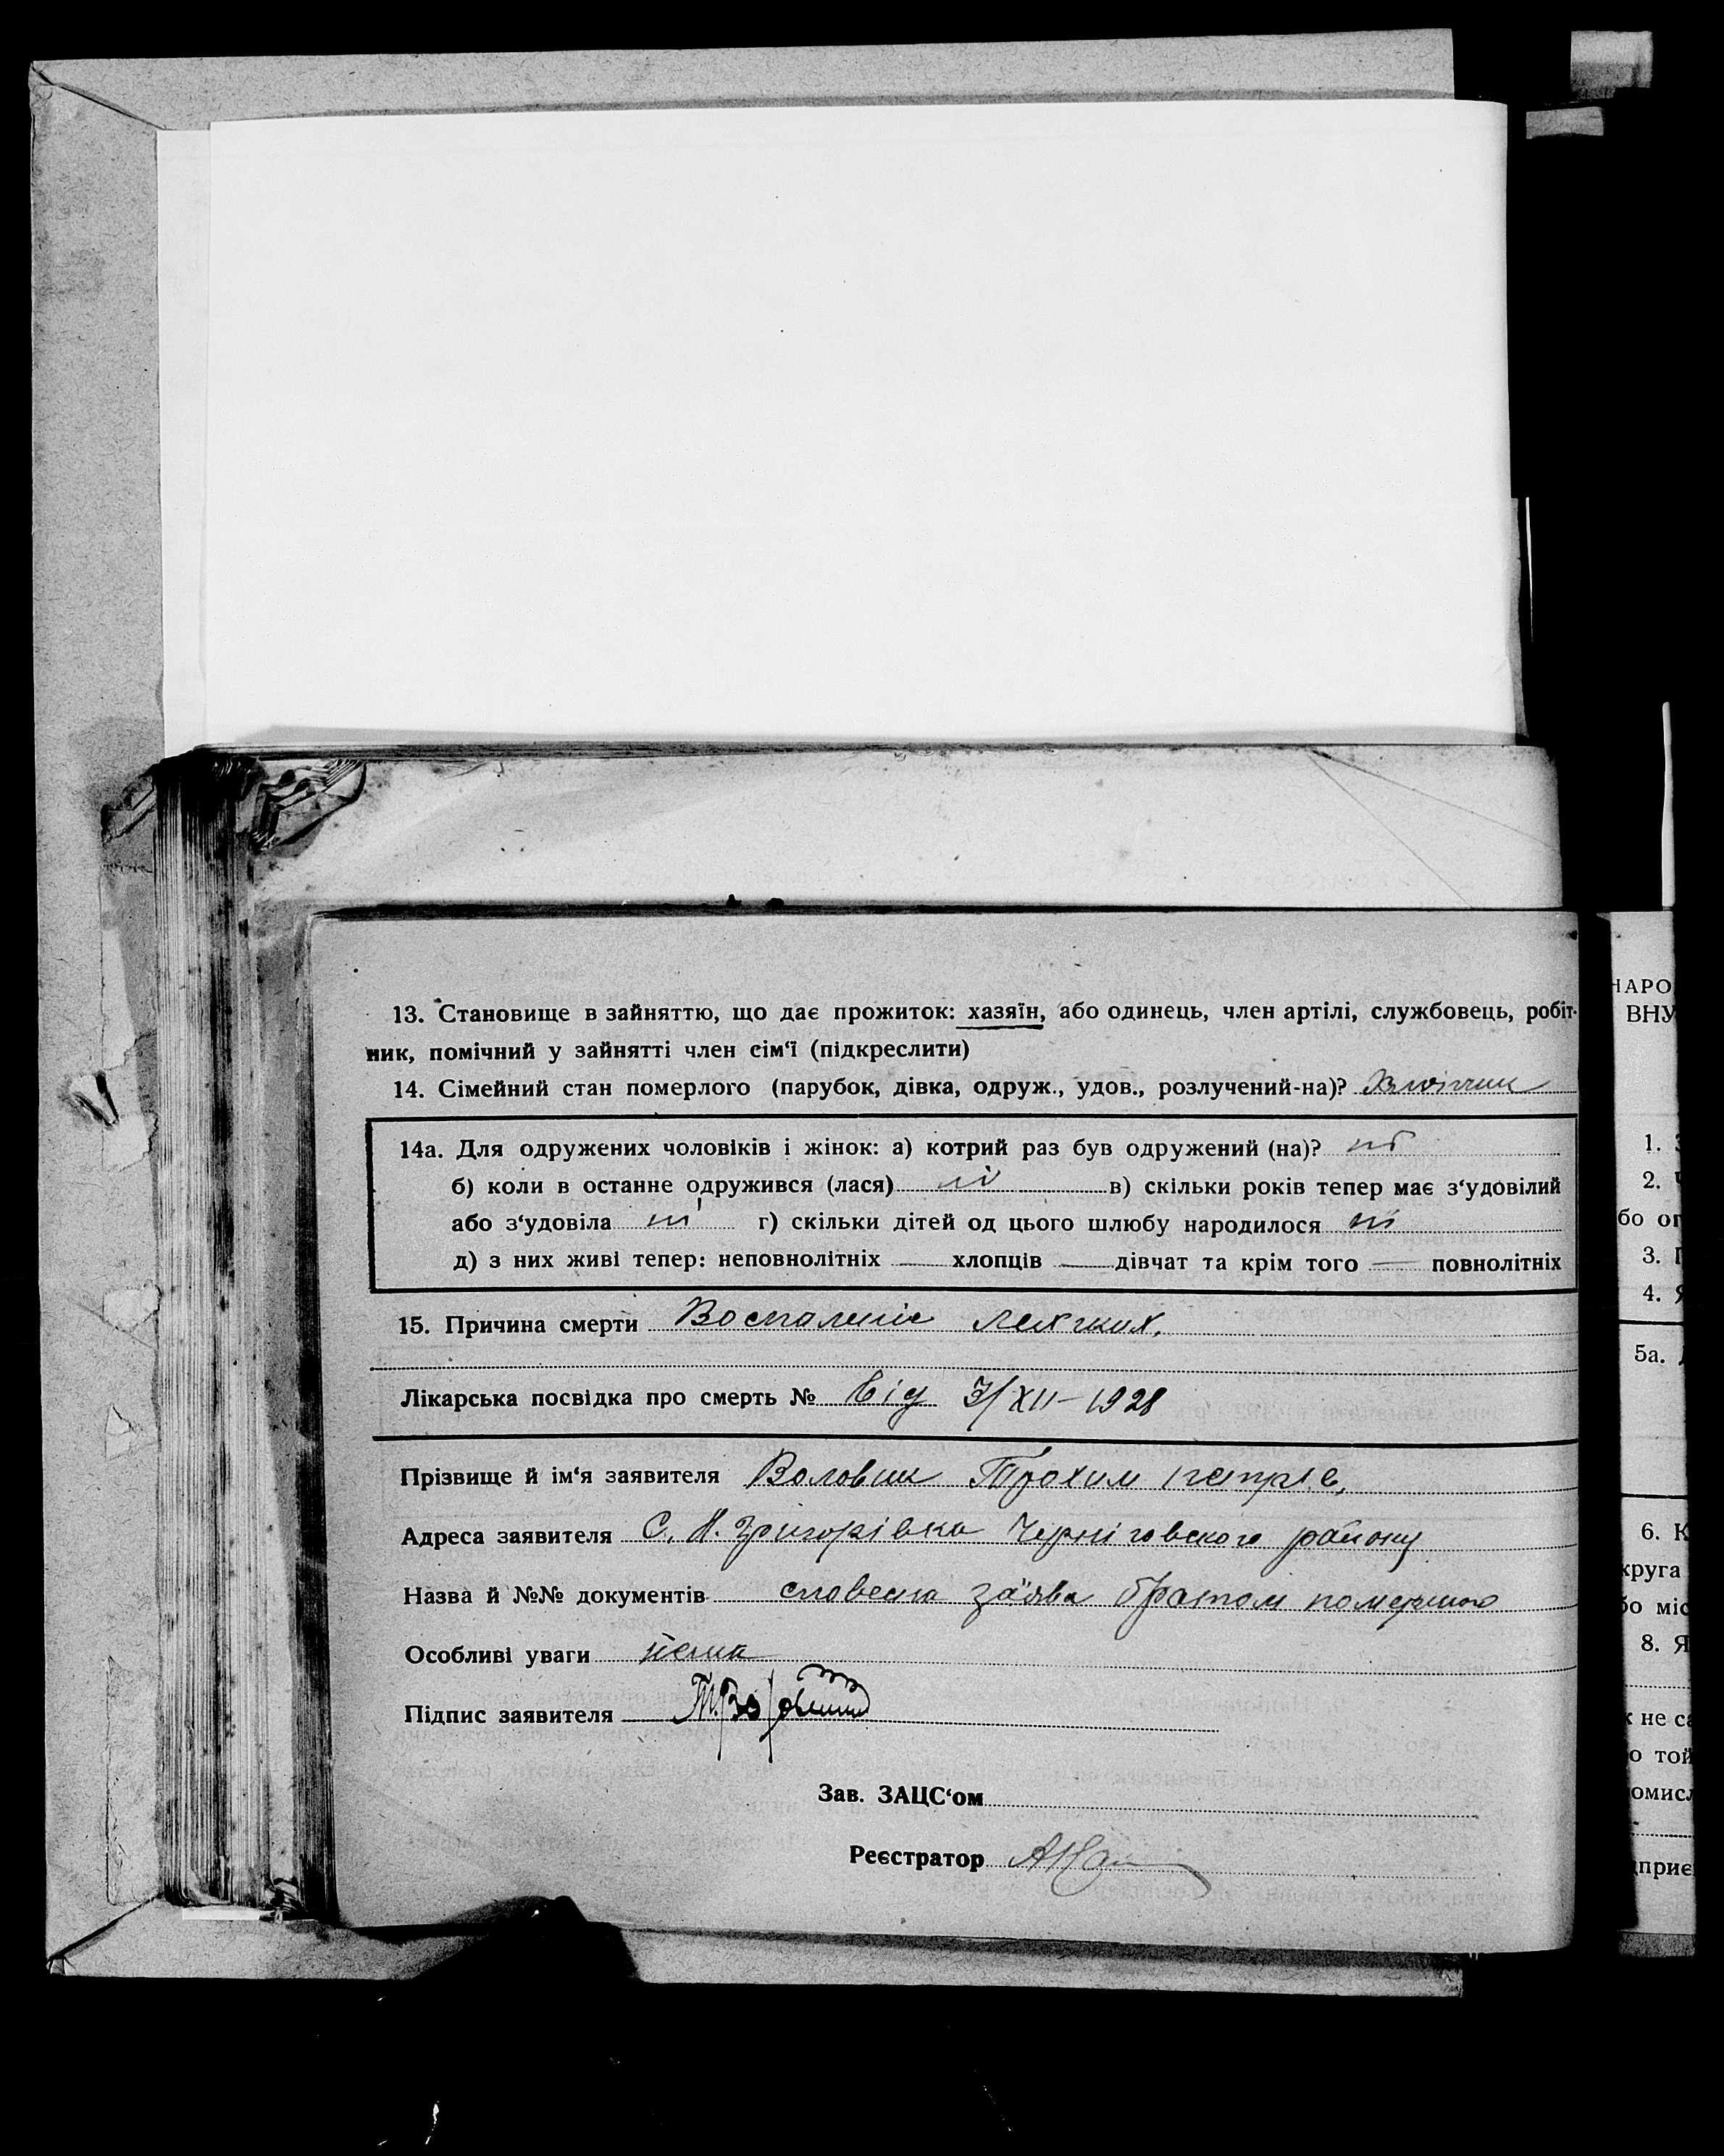 13. Становище в зайняттю, що дає прожиток: хазяїн, або одинець, член артілі, службовець, робіт-
ник, помічний у зайнятті член сім‘ї (підкреслити)
14. Сімейний стан померлого (парубок, дівка, одруж., удов., розлучений-на)?
14а. Для одружених чоловіків і жінок: а) котрий раз був одружений (на)? ні
б) коли в останне одружився (лася) ні в) скільки років тепер має з‘удовілий
або з‘удовіла ні г) скільки дітей од цього шлюбу народилося ні
д) з них живі тепер: неповнолітніх — хлопців — дівчат та крім того — повнолітніх
15. Причина смерти Воспаленіе лехчких.
Лікарська посвідка про смерть № від 3/XII-1928
Прізвище й ім‘я заявителя Воловик Трохим петрів,
Адреса заявителя С. Н. Григорівка Черніговского району
Назва й №№ документів словесна заява братом помершого
Особливі уваги
Підпис заявителя
Зав. ЗАЦС‘ом
Реєстратор
НАРО
ВНУ
1. З
2. Ч
бо ог
3. П
4. Я
5а.
6. К
круга
бо міс
8. Я
к не са
о той
омисл
приє